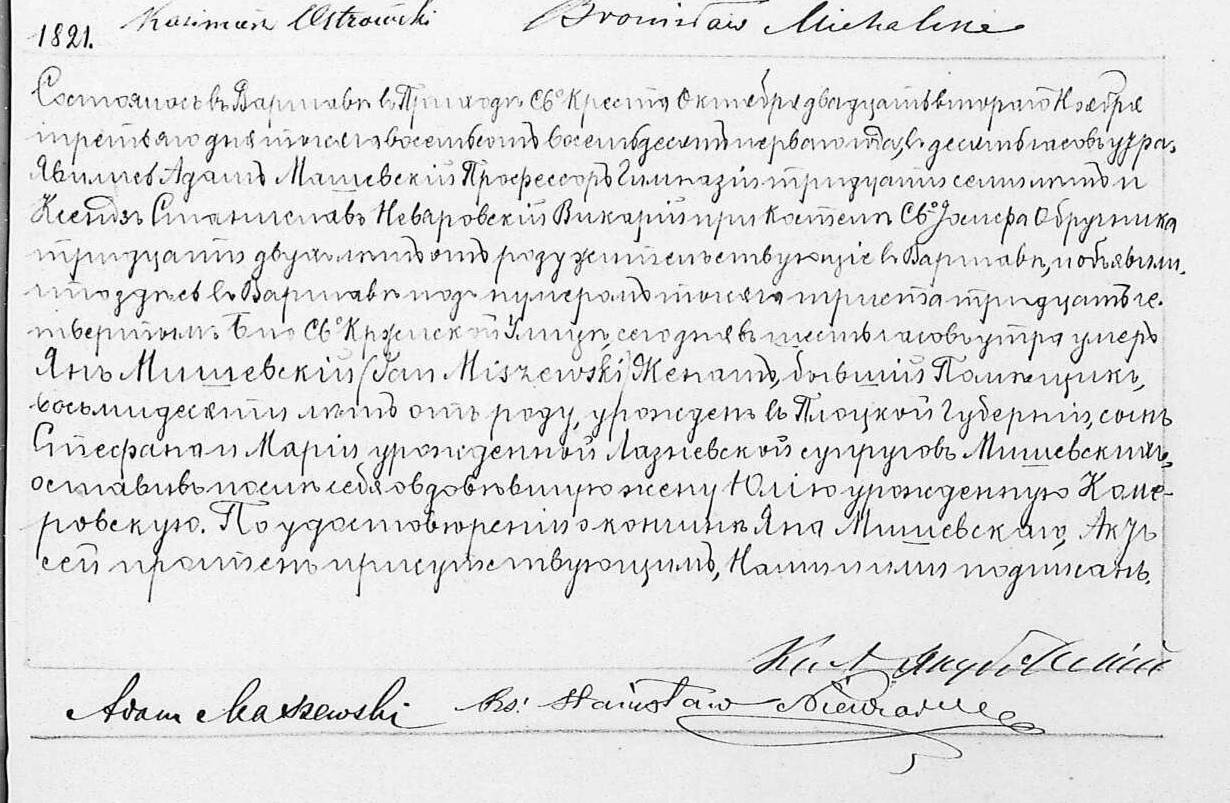 Kazimierz Ostrowski Bronisław
1821.
Состоялось въ Варшавѣ въ Приходѣ Св.о Креста Октября двадцать втораго Ноября
третьяго дня тысяча восемьсотъ восемьдесятъ перваго года, въ десять часовъ утра,
Явились Адамъ Машевскій Профессоръ Гимназіи тридцати семи лѣтъ и
Ксендзъ Станиславъ Невяровскій Викарій при Костелѣ Св.о Іосифа Обручника
тридцати двухъ лѣтъ отъ роду жительствующіе въ Варшавѣ, и объявили,
что здѣсь въ Варшавѣ подъ нумеромъ тысяча триста тридцать че-
твертымъ Б по Св.о Кржиской Улицѣ, сегодня въ шесть часовъ утра умеръ
Янъ Мишевскій (Jan Miszewski) Женатъ, бывшій Помѣщикъ,
восьмидесяти лѣтъ отъ роду, урожденъ въ Плоцкой Губерніи, сынъ
Стефана и Маріи урожденной Лазневской супруговъ Мишевскихъ,
оставивъ послѣ себя овдовѣвшую жену Юлію урожденную Коме-
ровскую. По удостовѣреніи о кончинѣ Яна Мишевскаго, Актъ
сей прочтенъ присутствующимъ, Нами и ими подписанъ.
Adam Maszewski Ks: Stanisław